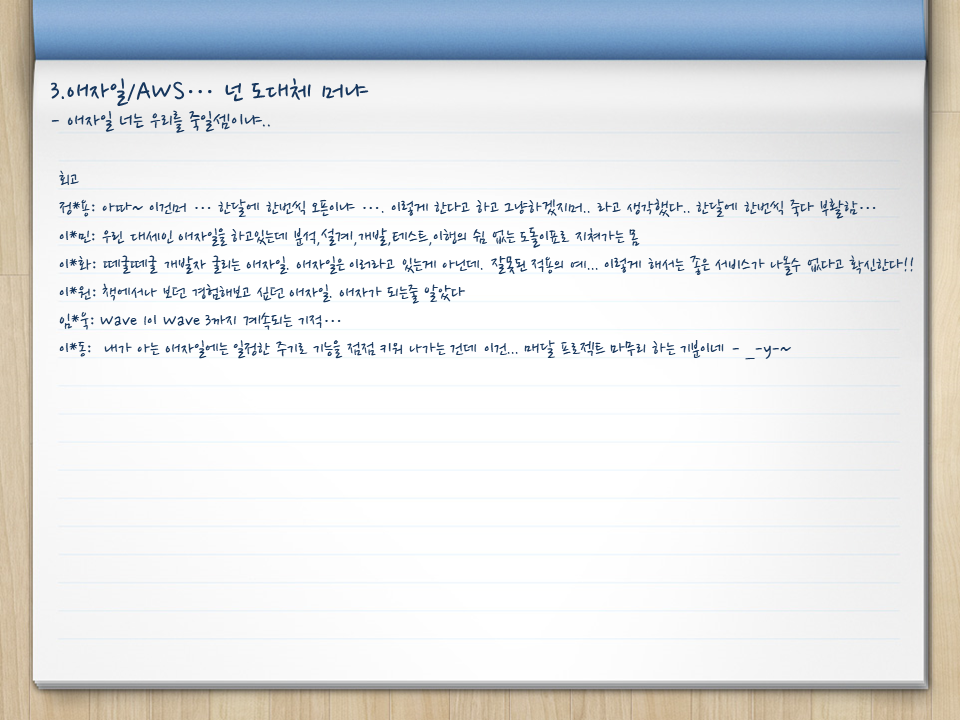 3.애자일/AWS... 넌 도대체 머냐
- 애자일 너는 우리를 죽일셈이냐..
회고
정*용: 아따~ 이건머 ... 한달에 한번씩 오픈이냐 .... 이렇게 한다고 하고 그냥하겠지머.. 라고 생각했다.. 한달에 한번씩 죽다 부활함...
이*민: 우린 대세인 애자일을 하고있는데 분석,설계,개발,테스트,이행의 쉼 없는 도돌이표로 지쳐가는 몸
이*화: 떼굴떼굴 개발자 굴리는 애자일. 애자일은 이러라고 있는게 아닌데. 잘못된 적용의 예... 이렇게 해서는 좋은 서비스가 나올수 없다고 확신한다!!
이*원: 책에서나 보던 경험해보고 싶던 애자일. 애자가 되는줄 알았다
임*욱: wave 1이 wave 3까지 계속되는 기적...
이*동: 내가 아는 애자일에는 일정한 주기로 기능을 점점 키워 나가는 건데 이건... 매달 프로젝트 마무리 하는 기분이네 - _-y-~